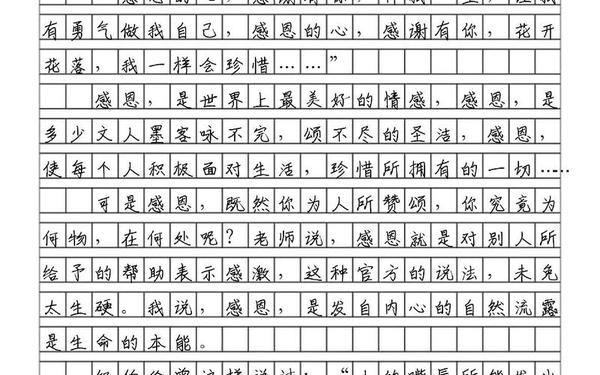 有勇气做我自己，感恩的心，感谢有你，花开
花落，我一样会珍惜……”
感恩，是世界上最美好的情感，感恩，是
多少文人墨客咏不完，颂不尽的圣洁，感恩，
使每个人积极面对生活，珍惜所拥有的一切……
可是感恩，既然你为人所赞颂，你究竟为
何物，在何处呢？老师说，感恩就是对别人所
给予的帮助表示感激，这种官方的说法，未免
太生硬。我说，感恩，是发自内心的自然流露
是生命的本能。